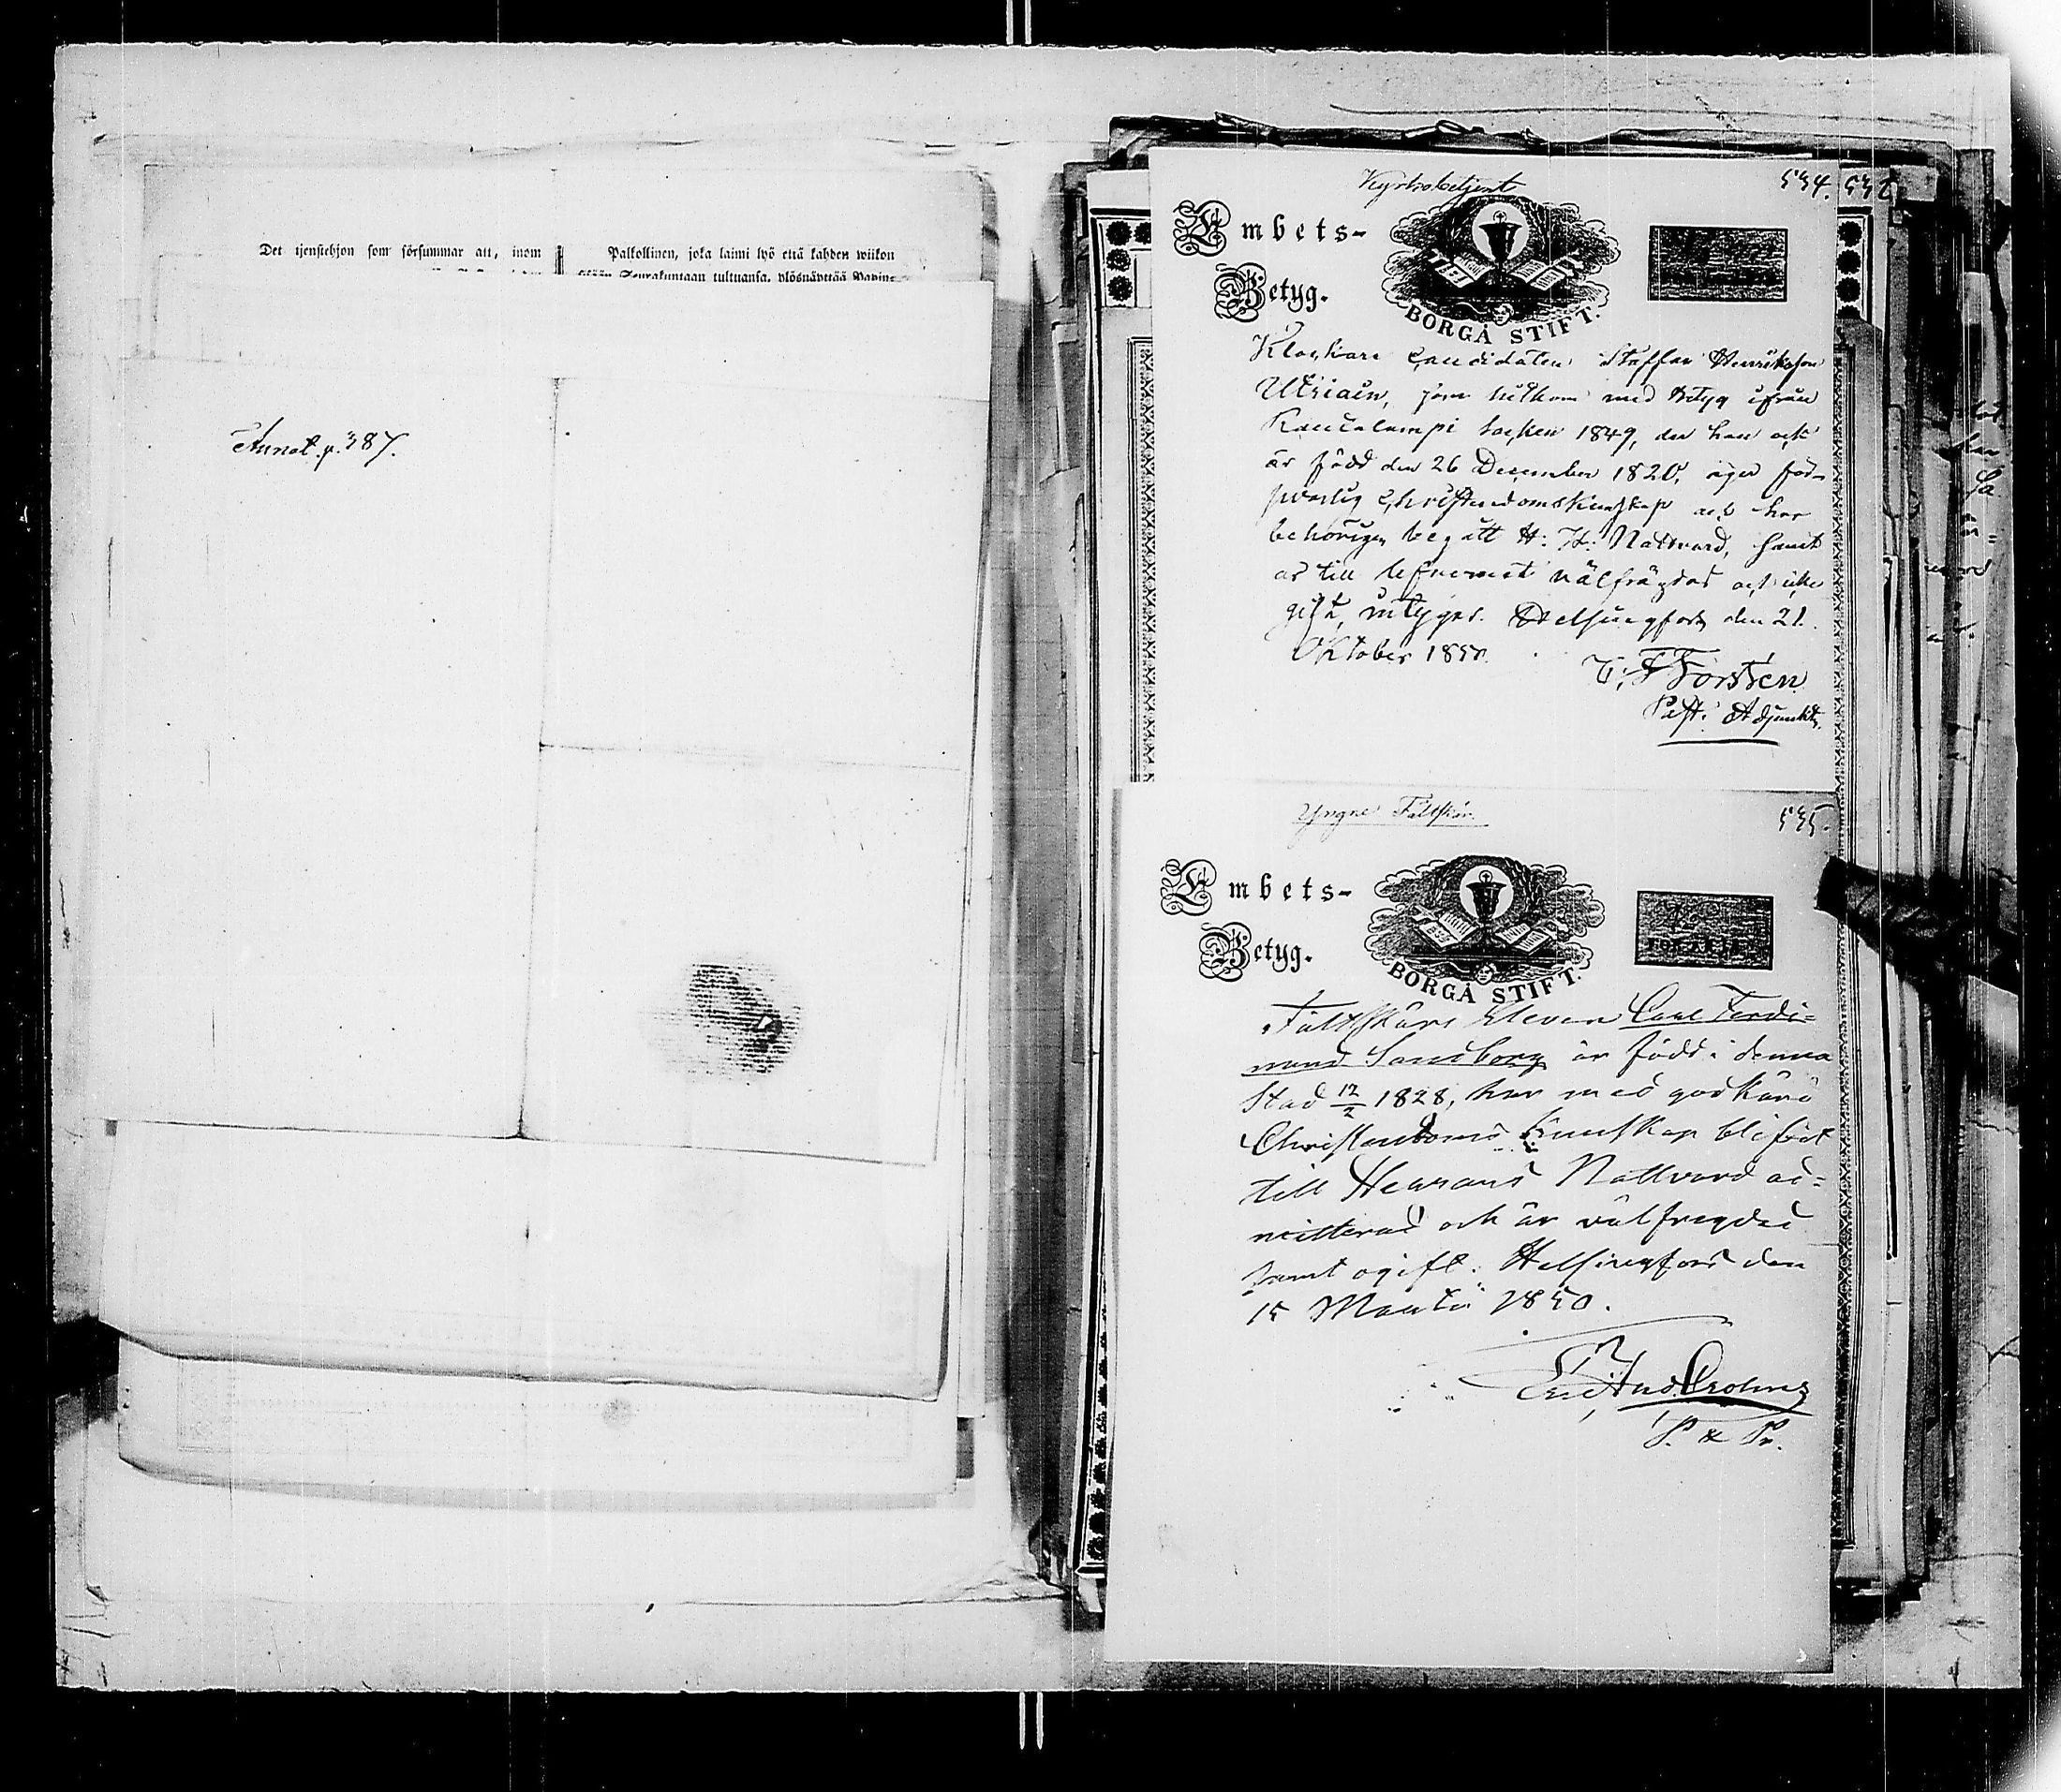 Det tjenstehjon som försummar att, inom
Palkollinen, joka laimi lyö että kahden wiikon
Seurakuntaan tultuansa, ylösnäyttää
Annot. p. 387.
Kyrkobetjent
534.
Embets-
Betyg.
BORGÅ STIFT.
Klockare Candidaten Staffan Henriksson
Utriain, som hitkom med betyg ifrån
Rautalampi socken 1849, der han ock
är född den 26 December 1820, äger för-
svarlig Christendomskunskap och har
behörigen begått H: H: Nattvard, samt
är till lefvernet välfrägdad och icke
gift, intygar. Helsingfors den 21.
Oktober 1850.
Forstén
Past. Adjunkt.
Yngre Fältskär.
535.
Embets-
Betyg.
BORGÅ STIFT.
Fältskärs Eleven Carl Ferdi=
nand Sandborg är född i denna
Stad 12/2 1828, har med godkänd
Christendoms kunskap blifvit
till Herrans Nattvard ad=
mitterad och är välfregdad
samt ogift. Helsingfors den
15 Martii 1850.
P. & Pr.